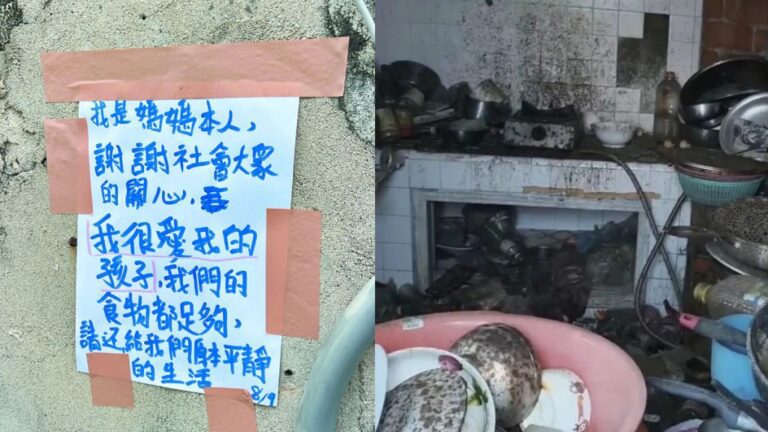 我是媽媽本人，
謝謝社會大眾
的關心，
我很愛我的
孩子，我們的
食物都足夠，
請还給我們平靜
的生活
8/9